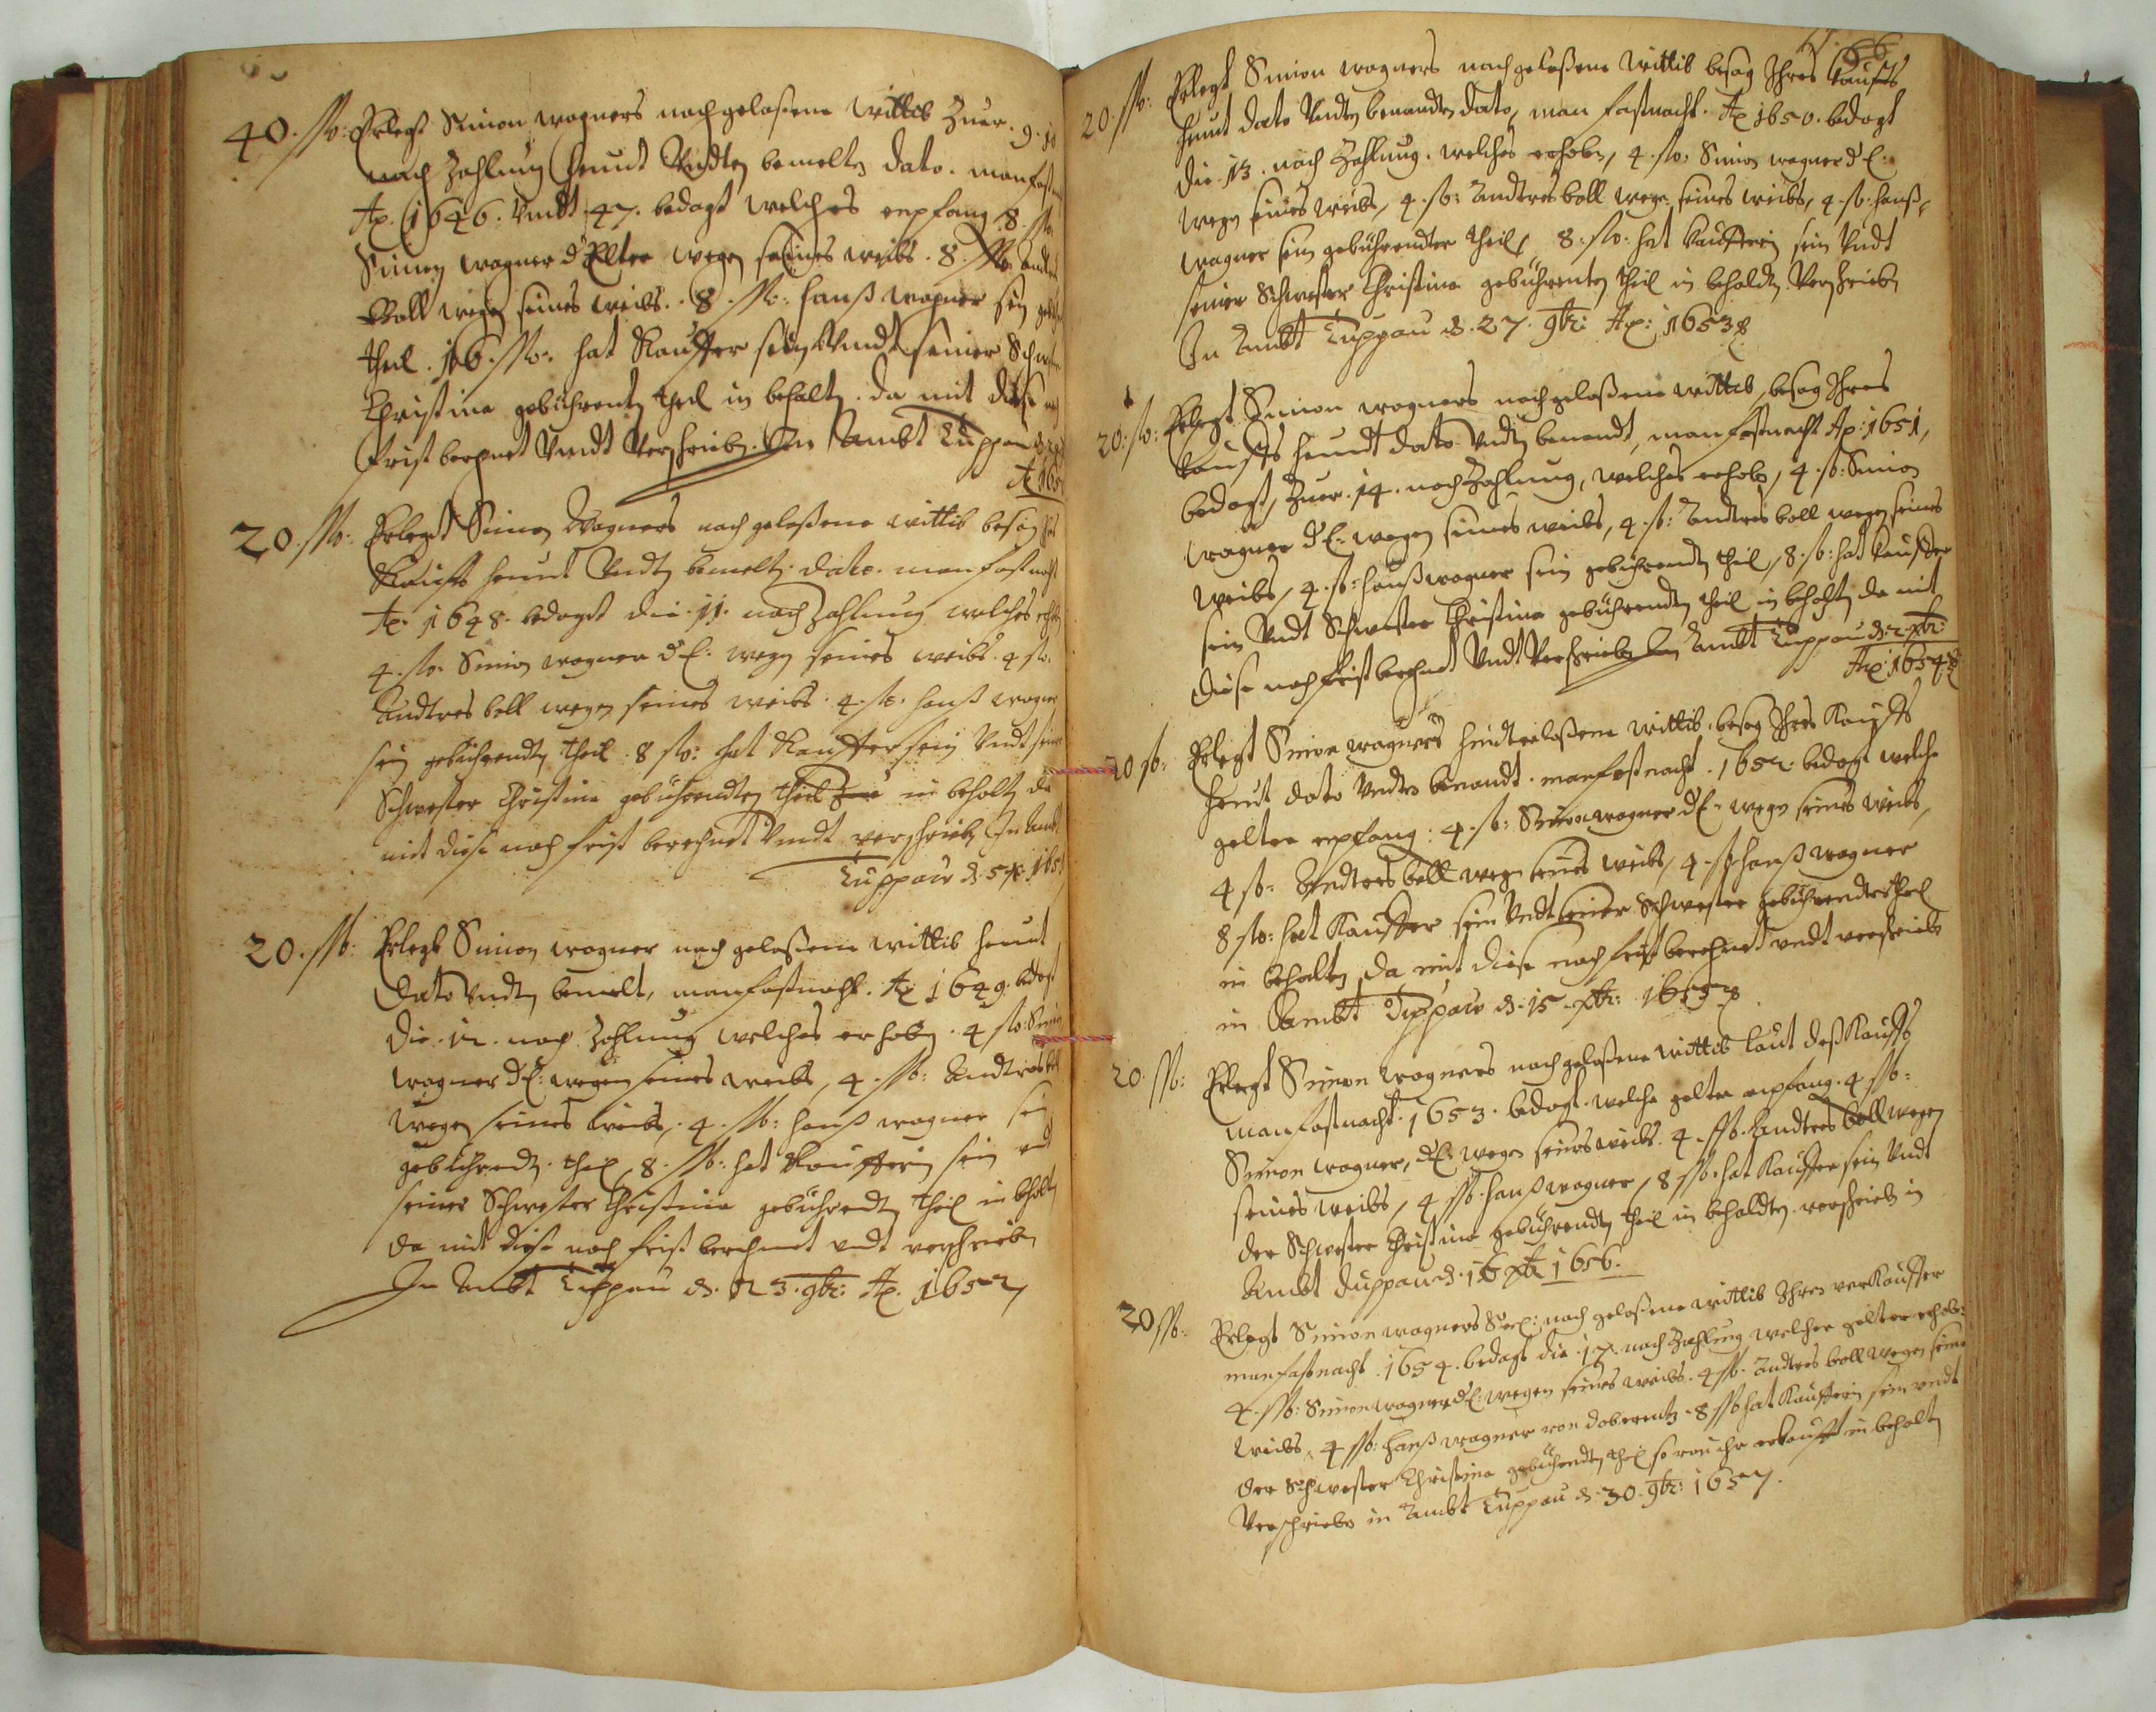 40. ßo: Erlegt Simon wagners nachgelaßene wittib Zuer. 9. 10
nach Zahlung heunt Undten bemelten dato. man
Ao. 1646. Undt 47. bedagt welches enpfang 8. ßo
Simon wagner d Elter wegen seines weibs. 8. ßo.
Boll wegen seines weibs. 8. ßo: Hanß wagner sein
theil. 16. ßo. hat Kauffer sein Undt seiner
Christina gebührenten theil in behalten. da mit diese
frist berechnet Undt Verschrieben. In Ambt Tuppau
Ao 165
20. ßo: Erlegt Simon Wagners nach gelaßene wittib besag
Kaufs heunt Undten bemelten dato. man fastnacht
Ao. 1648. bedagt die. 11. nach Zahlung welches
4. ßo: Simon wagner d E: wegen seines weibs. 4 ßo.
Andtres boll wegen seines weibs. 4. ßo. hanß wagner
sein gebührendten theil. 8 ßo: hat Kauffer sein Undt
Schwester Christina gebührendten theil in behalten da
mit diese nach frist berechnet Undt verschrieben In
Tuppau d. 5 165
20. ßo: Erlegt Simon wagner nach gelaßene wittib heunt
Dato Undten bemelt, man fastnacht. Ao 1649. bedagt
die. 12. nach Zahlung welches erhoben. 4 ßo: Simon
wagner d E: wegen seines weibs, 4. ßo: Andtres
wegen seines weibs,. 4. ßo: hanß wagner sein
gebührendten theil, 8. ßo: hat Kaufferin sein
seiner Schwester Christina gebührendten theil in behalten
da mit diese nach frist berechnet undt verschrieben
In Ambt Tuppau d. 23. 9br: Ao. 1652
66
20. ßo: Erlegt Simon wagners nachgelaßene Wittib besag Ihres Kaufs
heunt dato Undten benandten dato, man fastnacht. Ao 1650. bedagt
die. 13. nach Zahlung. welches erhoben, 4. ßo: Simon wagner d E:
wegen seines weibs, 4. ßo: Andtres boll wegen seines weibs, 4. ßo: hanß
wagner sein gebührendter theil, 8: ßo: hat Kaufferin sein Undt
seiner Schwester Christina gebührenten theil in behaldten Verschrieben
In Ambt Tuppau d. 27. 9br: Ao: 1653
20. ßo: Erlegt Simon wagners nachgelaßene wittib, besag Ihres
Kaufs heundt dato Undten benandt, man fastnacht Ao: 1651,
bedagt, Zuer. 14. nach Zahlung, welches erhoben, 4. ßo: Simon
wagner d E: wegen seines weibs, 4. ßo: Andtres boll wegen seines
weibs, 4. ßo: hanß wagner sein gebührendten theil, 8. ßo: hat Kauffer
sein Undt Schwester Christina gebührendten theil in behalten da mit
diese nach frist berechnet Undt Verschrieben In Ambt Tuppau d. 2. xbr:
Ao: 1654
20 ßo: Erlegt Simon wagners hindterlaßene wittib. besag Ihres Kaufs
heunt dato Undten benandt. man fastnacht. 1652. bedagt welche
gelter enpfang: 4. ßo: Simon wagner d E: wegen seines weibs,
4 ßo: Andtres boll wegen seines weibs, 4. ßo hanß wagner
8 ßo: hat Kauffer sein Undt seiner Schwester gebührendter theil
in behalten, da mit diese nach frist berechnet undt verschrieben
in Ambt Duppau d. 15. xbr: 1655
20. ßo: Erlegt Simon Wagners nach gelaßene wittib laut deß Kaufs
man fastnacht. 1653. bedagt. welche gelter enpfang. 4 ßo:
Simon wagner, d E: wegen seines weibs. 4. ßo. Andtres boll wegen
seines weibs, 4 ßo. hanß wagner, 8 ßo: hat Kauffer sein Undt
der Schwester Christina gebührendten theil in behaldten. verschrieben in
Ambt Duppau d. 16 xbr 1656.
20 ßo: Erlegt Simon wagners Seel: nach gelaßene wittib Ihren verkauffer
man fastnacht. 1654. bedagt die. 17. nach Zahlung welcher gelter erhoben
4. ßo: Simon wagner d E: wegen seines weibs. 4 ßo. Andtres boll wegen seines
weibs, 4 ßo: hanß wagner von doberentz. 8 ßo hat Kaufferin sein undt
der Schwester Christina gebührendten theil so von ihr erkaufft in behalten
Verschrieben in Ambt Tuppau d. 30. 9br: 1657.